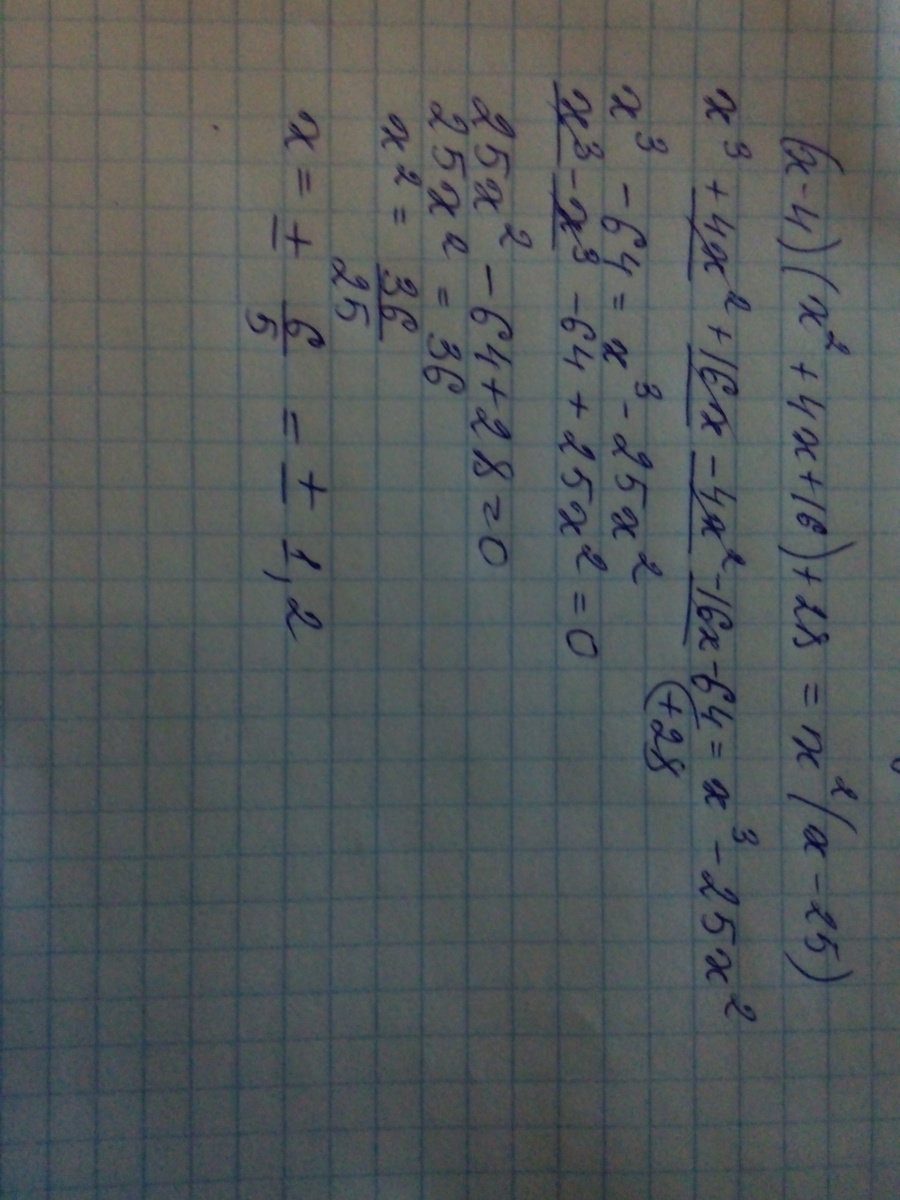 (x-4)(x²+4x+16)+28 = x²(x-25)
x³+4x²+16x-4x²-16x-64 = x³-25x²
+28
x³-64 = x³-25x²
x³-x³-64+25x² = 0
25x²-64+28=0
25x² = 36
x² = 36/25
x = ± 6/5 = ± 1,2